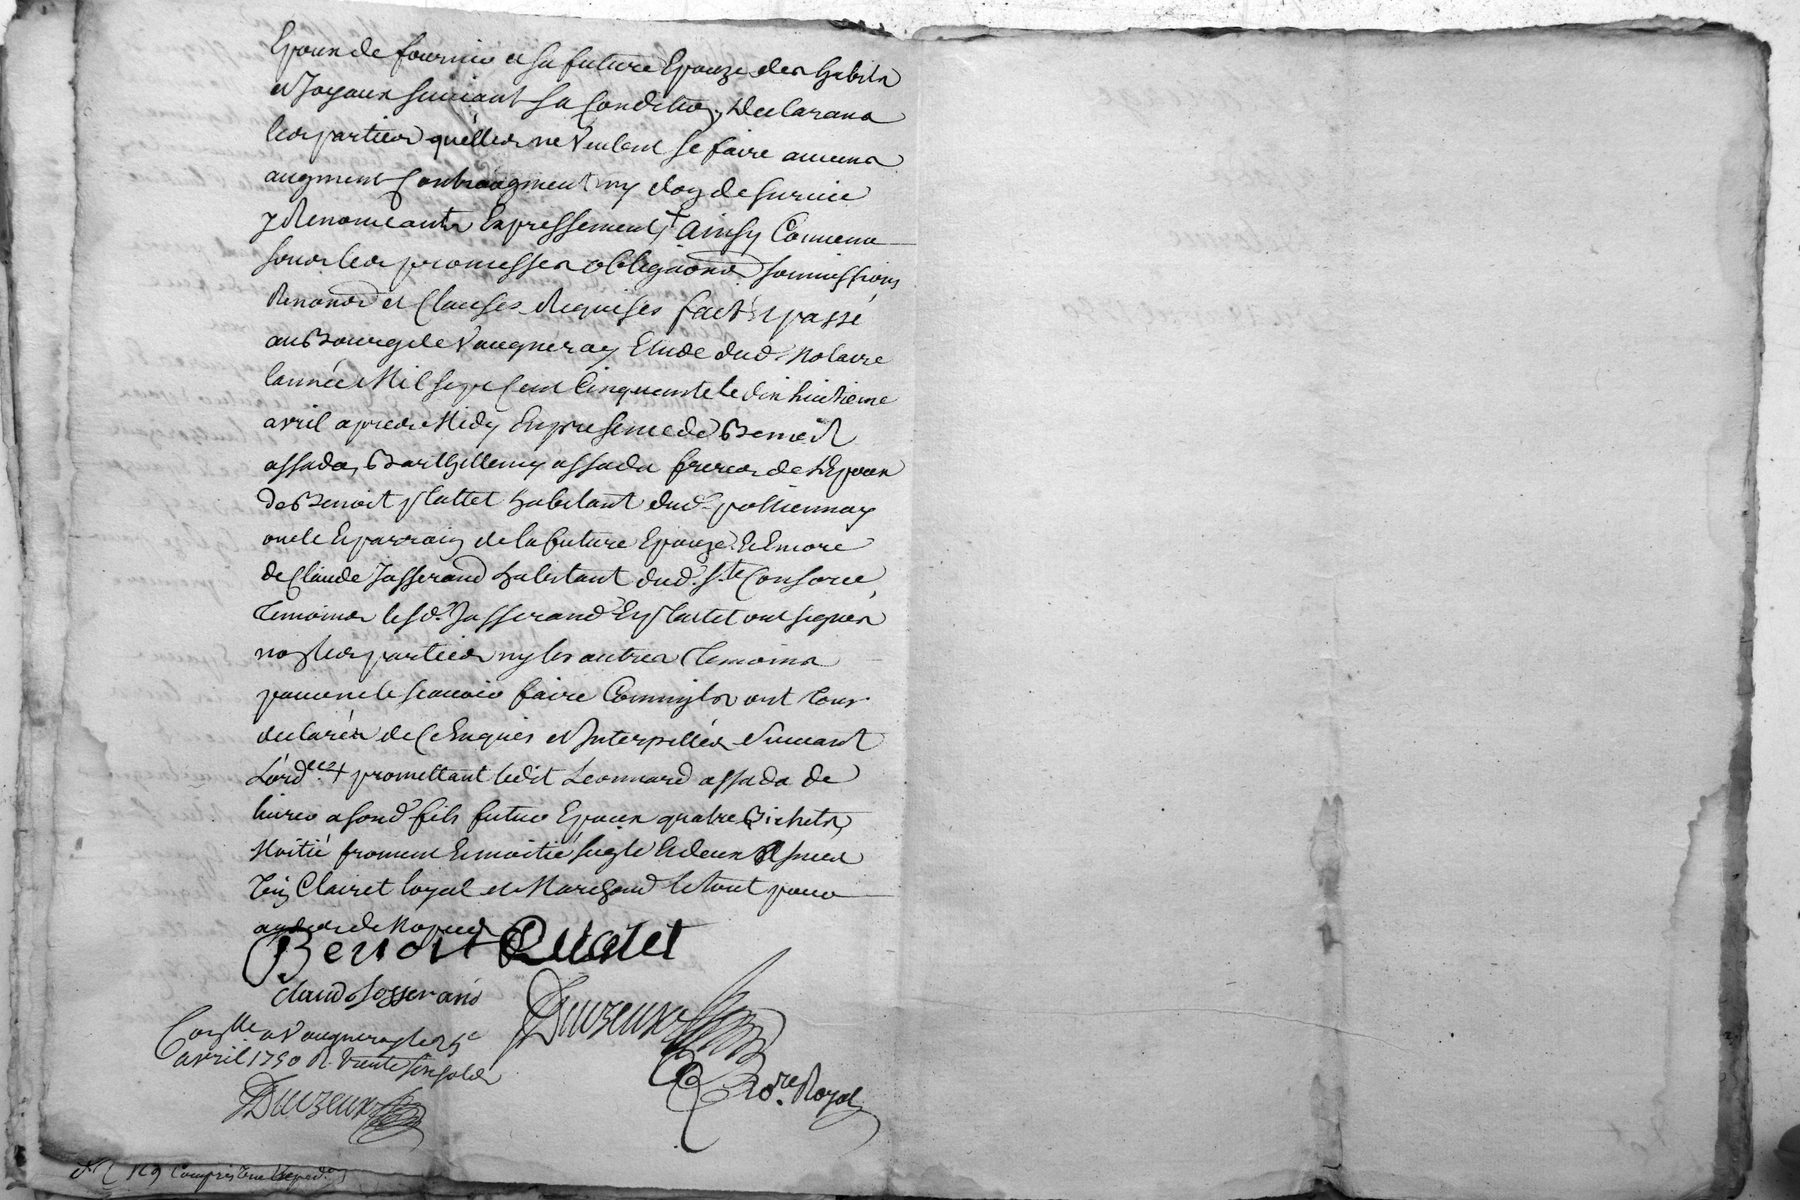 Epoux de fournir a sa future Epouze des habits
et Joyaux suivant sa Condition, Declarans
les parties quelles ne Veulent se faire aucuns
augment Contraugment ny don de survie
y Renonceants Expressement, + Ainsy Convenu
sous les promesses obligaons soumissions
Renonõns et Clauses Requises fait et passé
au Bourg de Vaugneray Etude dud. Notaire
lannée Mil sept Cent Cinquante le dix huitieme
avril apres Midy En presence de Benoit
assada, Barthellemy assada freres de L'Epoux
de Benoit plattet habitant dud. pollionnay
oncle Et parrain de la future Epouze Et Encore
de Claude Jasserand habitant dud. Ste Consorce,
Temoins led. Jasserand Et plattet ont signés
non les parties ny les autres Temoins
pour ne le scavoir faire Comm'ils ont tous
declarés de ce Enquis et Interpellés suivant
L'ordce. + promettant ledit Leonnard assada de
livrer a sond. fils futur Epoux quatre Bichets,
Moitié froment Et moitié seigle Et deux Asnées
Vin Clairet loyal et Marchand le tout pour
andes de Nopces
Benoit Platet
Claude Jasserand
Duzeux
Conlle. a Vaugneray le 25e
avril 1750 R. Trente six sols
Nore. Royal
Duzeux
129 Compris